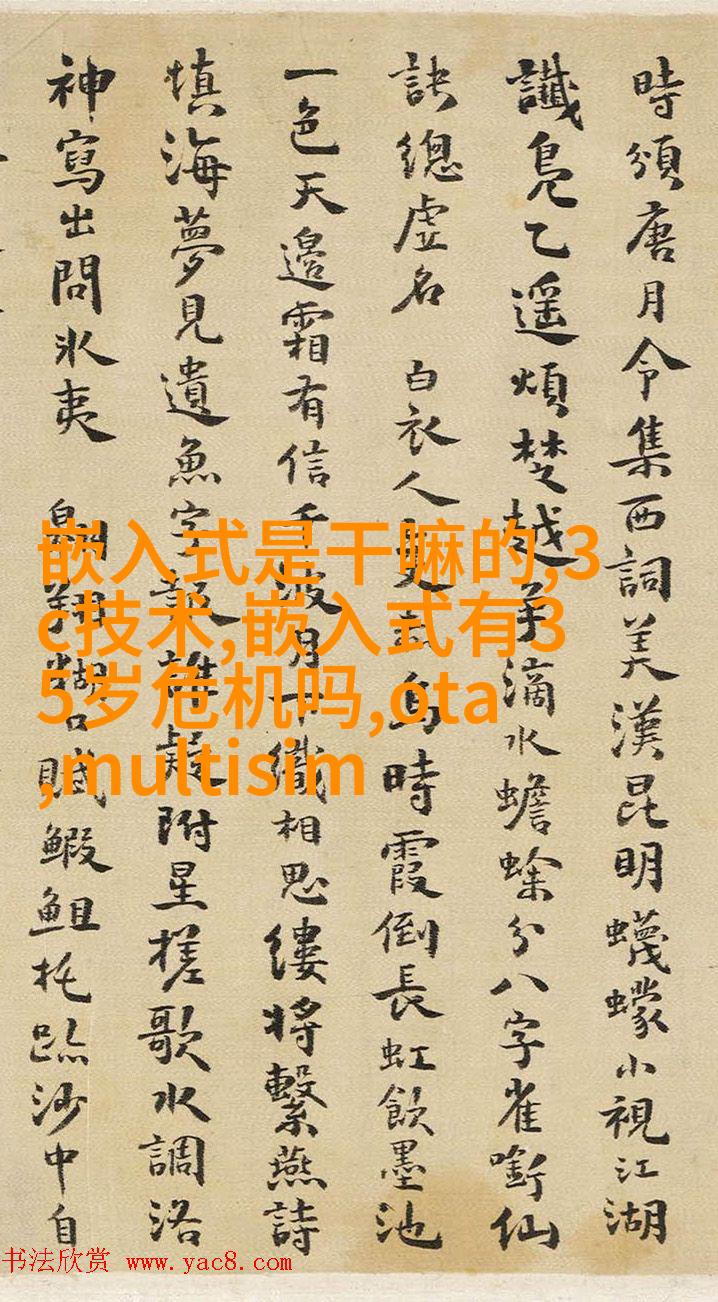 時頒唐月令集西詞美漢昆明蠛蠓小視江湖
讖鳧乙遥煩楚越爭滴水蟾蜍分八字雀銜仙
訣總虛名 白衣人更 烏時霞倒長虹飲墨池
一色天邊霜有信千波月下織相思縷將繫燕詩
慎海夢見遺魚字 誰疑附星槎歌水調洛
神寫出問冰夷 翱翔餬口賦鰕鉏托跡沙中自
嵌入式是干嘛的,3
c技术,嵌入式有3
5岁危机吗,ota
,multisim
书法欣赏 www.yac8.com